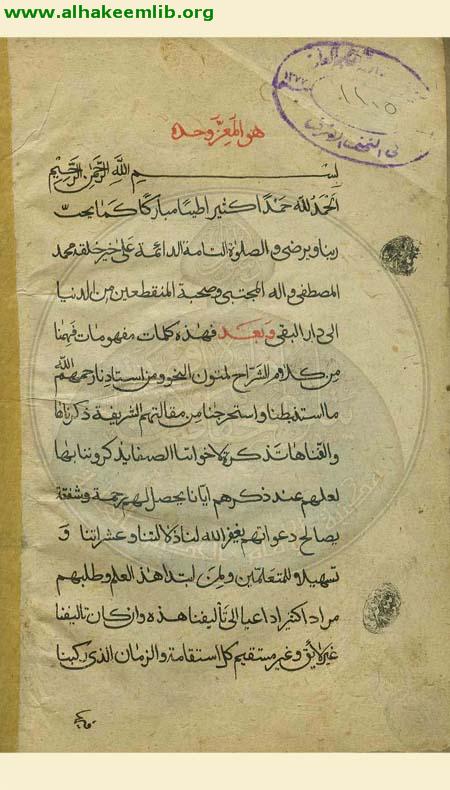 www.alhakeemlib.org
في النجف الاشرف
هو المعز وحده
بسم الله الرحمن الرحيم
الحمد لله حمدا كثيرا طيبا مباركا كما يحب
ربنا ويرضى والصلوة التامة الدائمة على خير خلقه محمد
المصطفى واله المجتبى وصحبة المنقطعين من الدنيا
الى دار البقى وبعد فهذه كلمات مفهومات فهمنا
من كلام الشراح لمتون النحو ومن استادنا رحمهم الله
ما استنبطنا واستخرجنا من مقالتهم الشريفة ذكرناها
والفناها تذكرة لاخواننا الصفا يذكروننا بها
لعلهم عند ذكرهم ايانا يحصل لهم رحمة وشفقة
بصالح دعواتهم يغفر الله لنا ذلاتنا وعثراتنا و
تسهيلا للمتعلمين ولمن ابتدا هذ العلم وطلبهم
مرادا كثيرا داعيا الى تأليفنا هذه وان كان تاليفنا
غير لائق وغير مستقيم كل استقامة والزمان الذى كتبنا